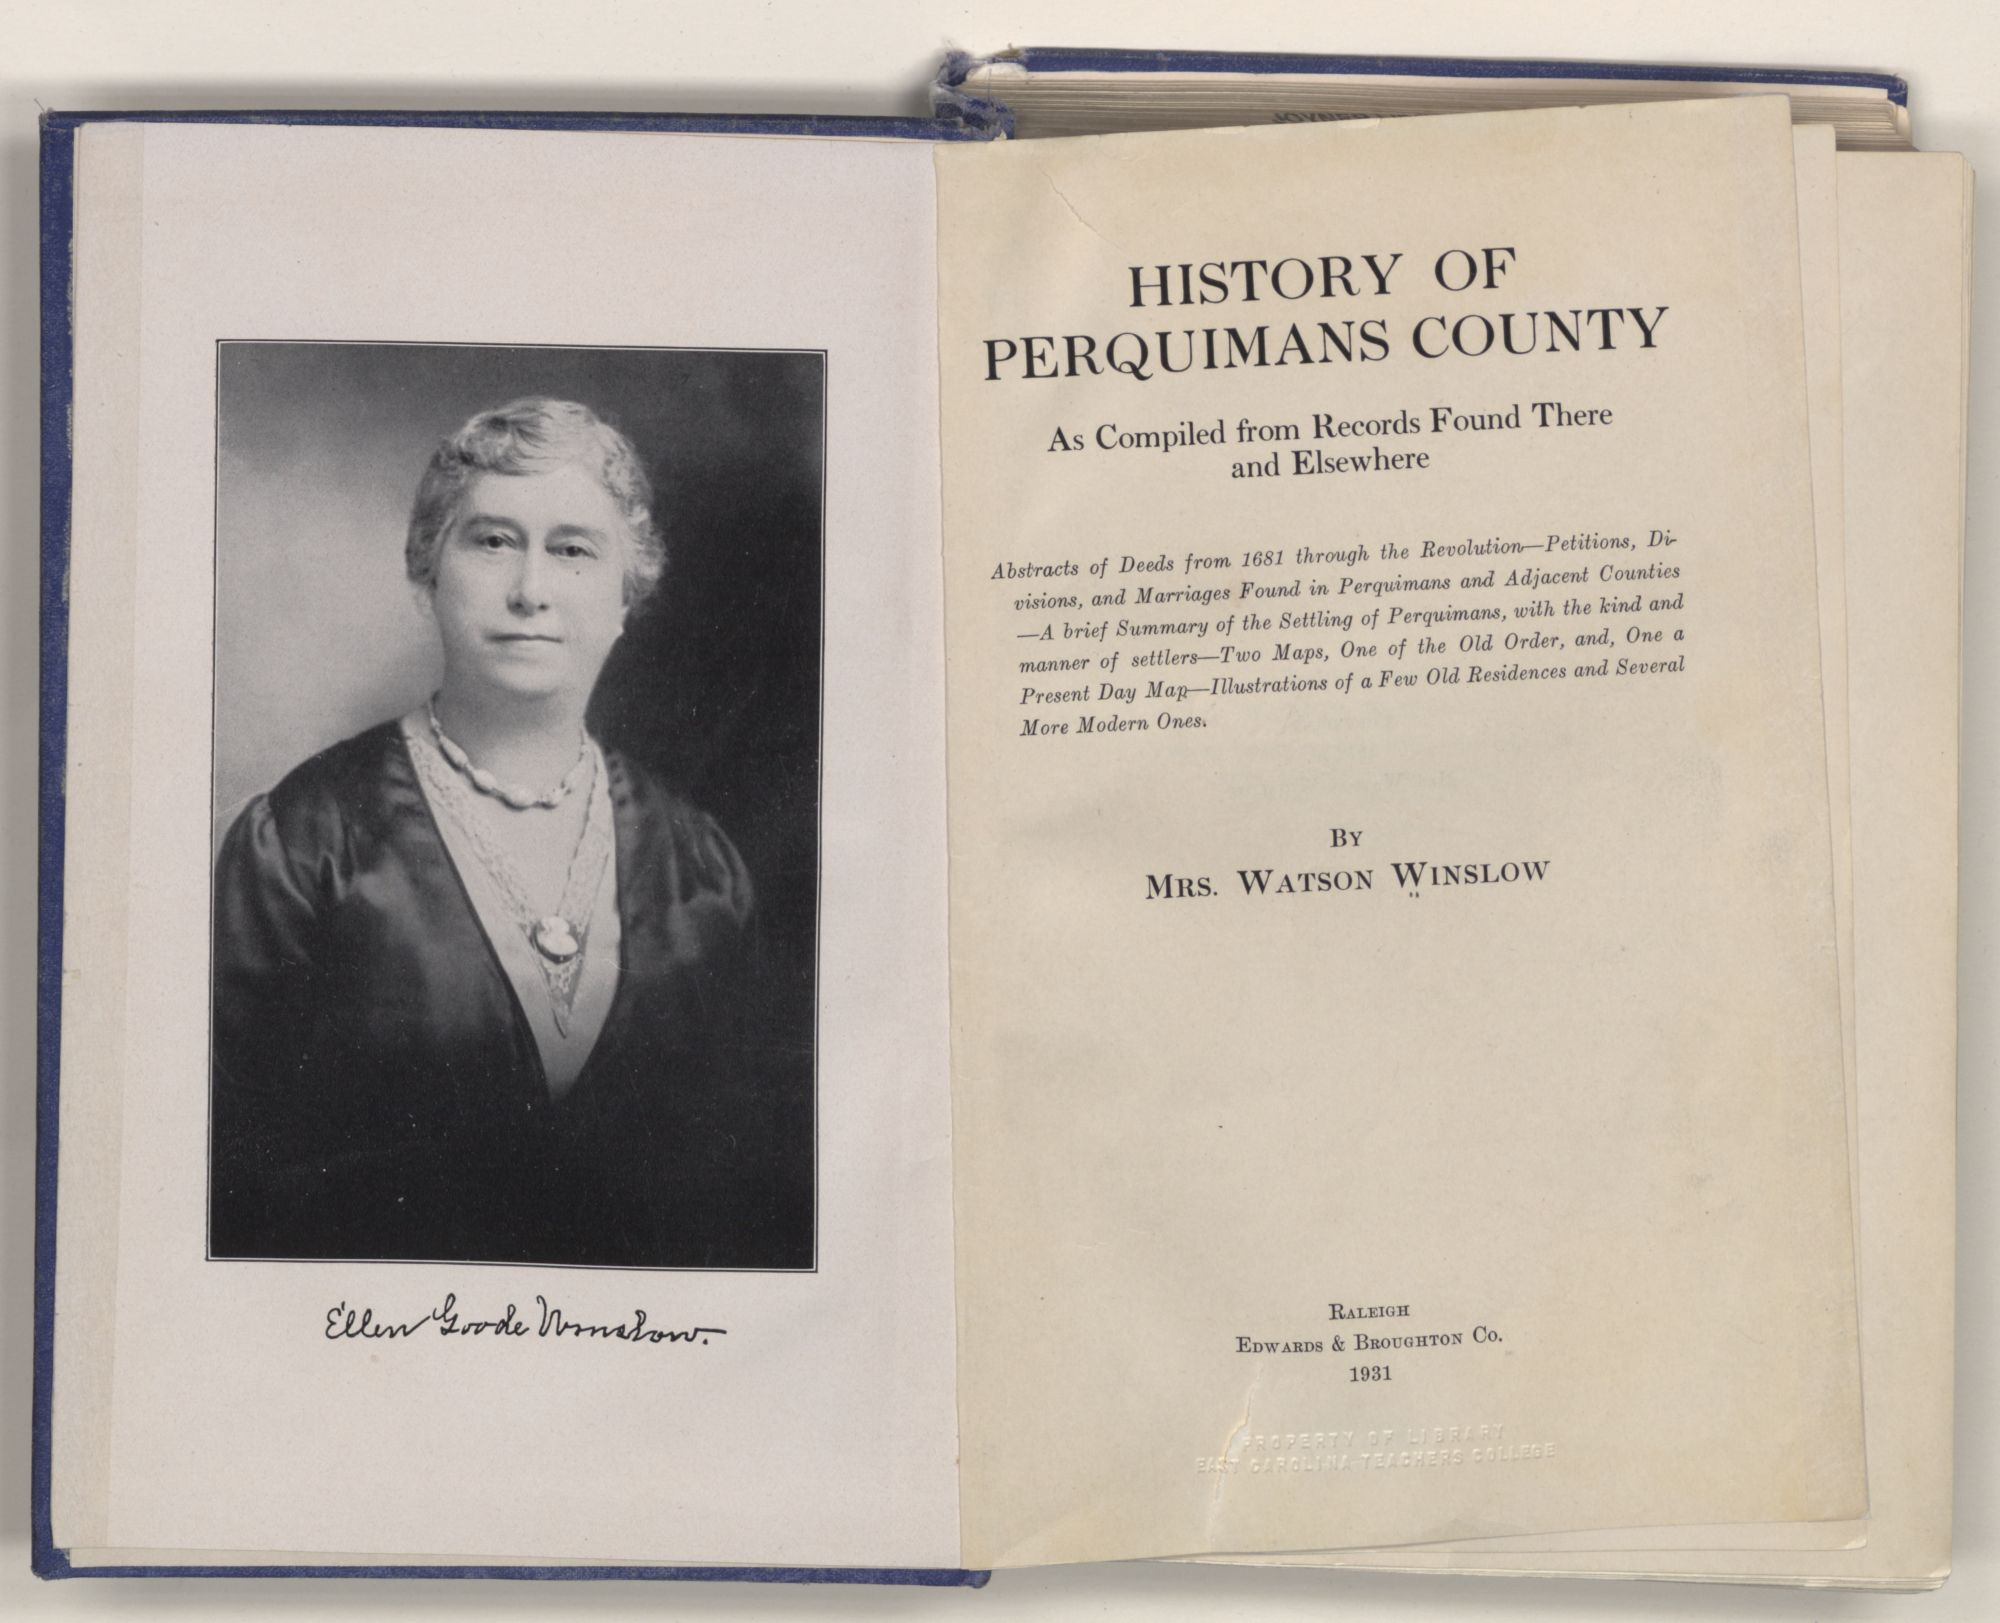 Ellen Goode Winslow.
HISTORY OF
PERQUIMANS COUNTY
As Compiled from Records Found There
and Elsewhere
Abstracts of Deeds from 1681 through the Revolution—Petitions, Di-
visions, and Marriages Found in Perquimans and Adjacent Counties
—A brief Summary of the Settling of Perquimans, with the kind and
manner of settlers—Two Maps, One of the Old Order, and, One a
Present Day Map—Illustrations of a Few Old Residences and Several
More Modern Ones.
BY
MRS. WATSON WINSLOW
RALEIGH
EDWARDS & BROUGHTON CO.
1931
PROPERTY OF LIBRARY
EAST CAROLINA TEACHERS COLLEGE